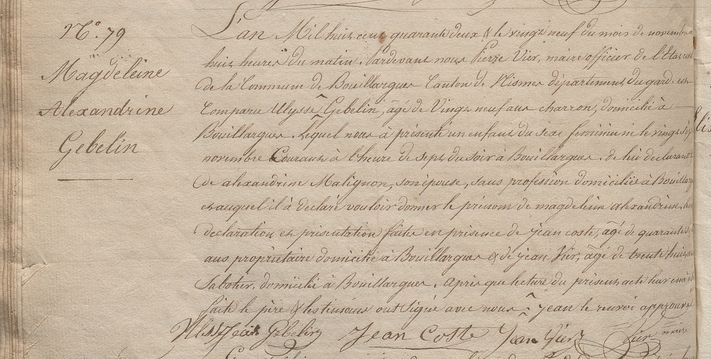 N.º 79
Magdeleine
Alexandrine
Gebelin
L'an Mil huit cent quarante deux & le vingt neuf du mois de novembre
huit heures du matin. Pardevant nous Pierre Vier, maire officier de l'Etat
de la Commune de Bouillargues Canton de Nismes département du gard. est
Comparu Ulysse Gebelin, agé de Vingt neuf ans charron, domicilié à
Bouillargues. Lequel nous à présenté un enfant du sexe féminin le vingt
novembre Courant à l'heure de sept du soir à Bouillargues. de lui déclarant
de alexandrine Matignon, son épouse, sans profession domiciliés à Bouillar
et auquel il à déclaré vouloir donner le prénom de magdeleine alexandrine.
déclaration et présentation faite en présence de jean coste, agé de quarante
ans propriétaire domicilié à Bouillargues & de jean Vier, agé de trente huit
Sabotier, domicilié à Bouillargues. Après que lecture du présent acte leur en a été
faite le père & les temoins ont signé avec nous jean le renvoi approuvé
Gebelin Jean Coste Jean Vier Vier maire